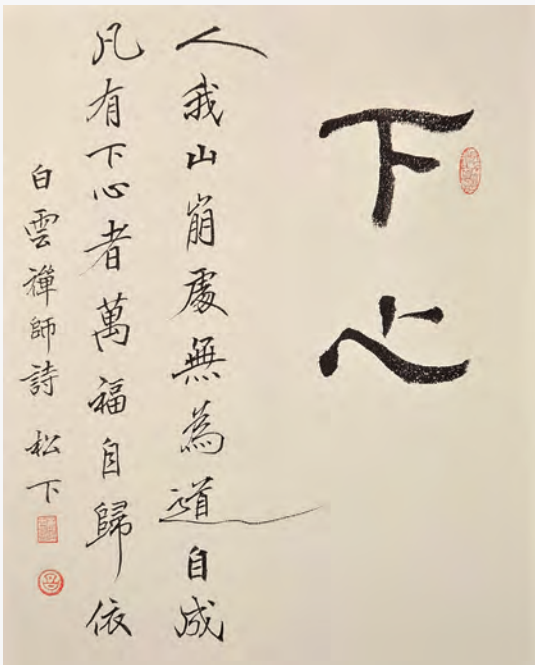 下心
人我山崩處無為道自成
凡有下心者萬福自歸依
白雲禪師詩 松下